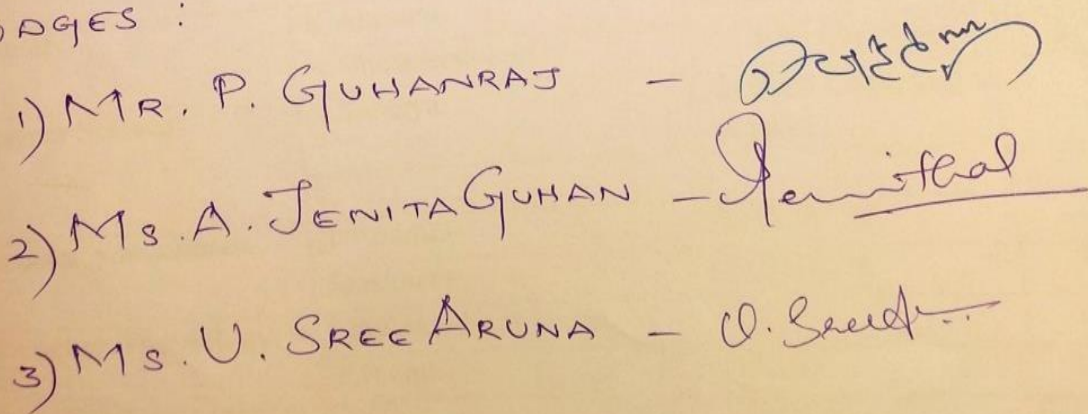 DGES :
1) MR. P. GUHANRAJ -
2) MS. A. JENITA GUHAN -
3) MS. U. SREE ARUNA - U.